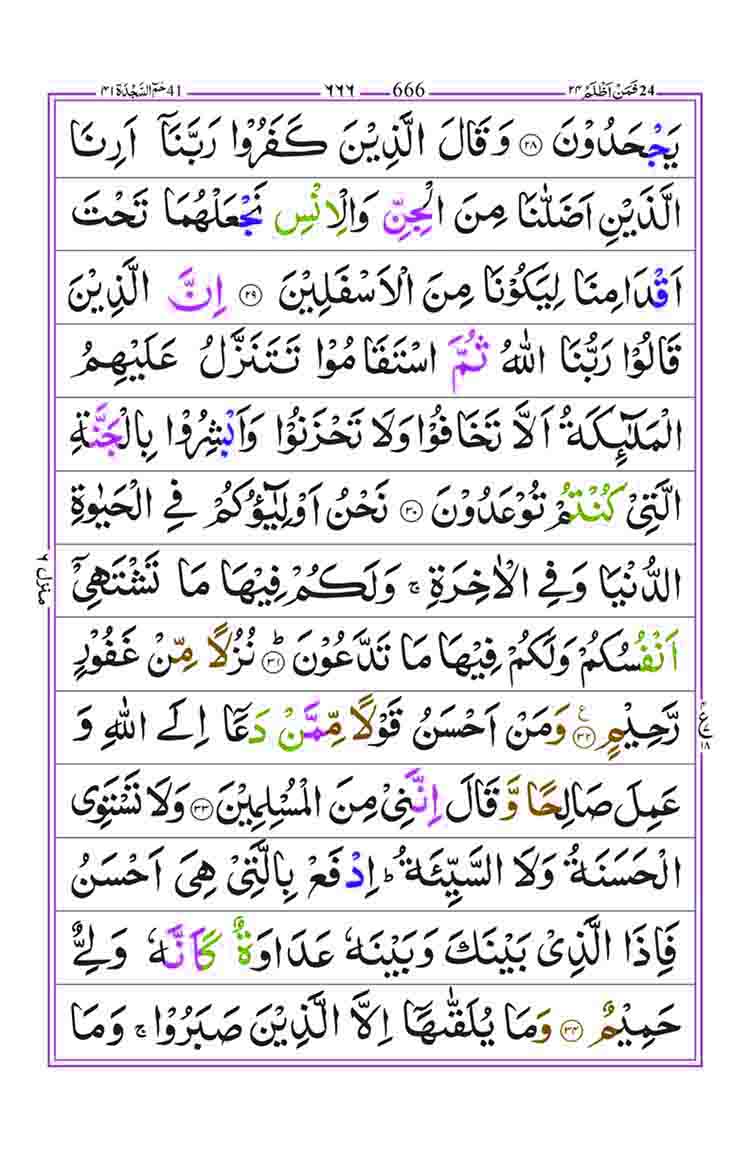 41 حٰمٓ السَّجۡدَة ۴۱ ٦٦٦ 666 24 فَمَنۡ اَظۡلَمُ ۲۴
يَجۡحَدُوۡنَ ﴿۲۸﴾ وَقَالَ الَّذِيۡنَ كَفَرُوۡا رَبَّنَاۤ اَرِنَا
الَّذَيۡنِ اَضَلّٰنَا مِنَ الۡجِنِّ وَالۡاِنۡسِ نَجۡعَلۡهُمَا تَحۡتَ
اَقۡدَامِنَا لِيَكُوۡنَا مِنَ الۡاَسۡفَلِيۡنَ ﴿۲۹﴾ اِنَّ الَّذِيۡنَ
قَالُوۡا رَبُّنَا اللّٰهُ ثُمَّ اسۡتَقَامُوۡا تَتَنَزَّلُ عَلَيۡهِمُ
الۡمَلٰٓٮِٕكَةُ اَلَّا تَخَافُوۡا وَلَا تَحۡزَنُوۡا وَاَبۡشِرُوۡا بِالۡجَنَّةِ
الَّتِىۡ كُنۡتُمۡ تُوۡعَدُوۡنَ ﴿۳۰﴾ نَحۡنُ اَوۡلِيٰٓؤُكُمۡ فِى الۡحَيٰوةِ
الدُّنۡيَا وَفِى الۡاٰخِرَةِ ۚ وَلَكُمۡ فِيۡهَا مَا تَشۡتَهِىۡۤ
اَنۡفُسُكُمۡ وَلَكُمۡ فِيۡهَا مَا تَدَّعُوۡنَ ؕ ﴿۳۱﴾ نُزُلًا مِّنۡ غَفُوۡرٍ
رَّحِيۡمٍ ﴿۳۲﴾ ع وَمَنۡ اَحۡسَنُ قَوۡلًا مِّمَّنۡ دَعَاۤ اِلَى اللّٰهِ وَ
عَمِلَ صَالِحًا وَّقَالَ اِنَّنِىۡ مِنَ الۡمُسۡلِمِيۡنَ ﴿۳۳﴾ وَلَا تَسۡتَوِى
الۡحَسَنَةُ وَلَا السَّيِّئَةُ ؕ اِدۡفَعۡ بِالَّتِىۡ هِىَ اَحۡسَنُ
فَاِذَا الَّذِىۡ بَيۡنَكَ وَبَيۡنَهٗ عَدَاوَةٌ كَاَنَّهٗ وَلِىٌّ
حَمِيۡمٌ ﴿۳۴﴾ وَمَا يُلَقّٰٮهَاۤ اِلَّا الَّذِيۡنَ صَبَرُوۡا ۚ وَمَا
منزل ۶
ع ۱۸